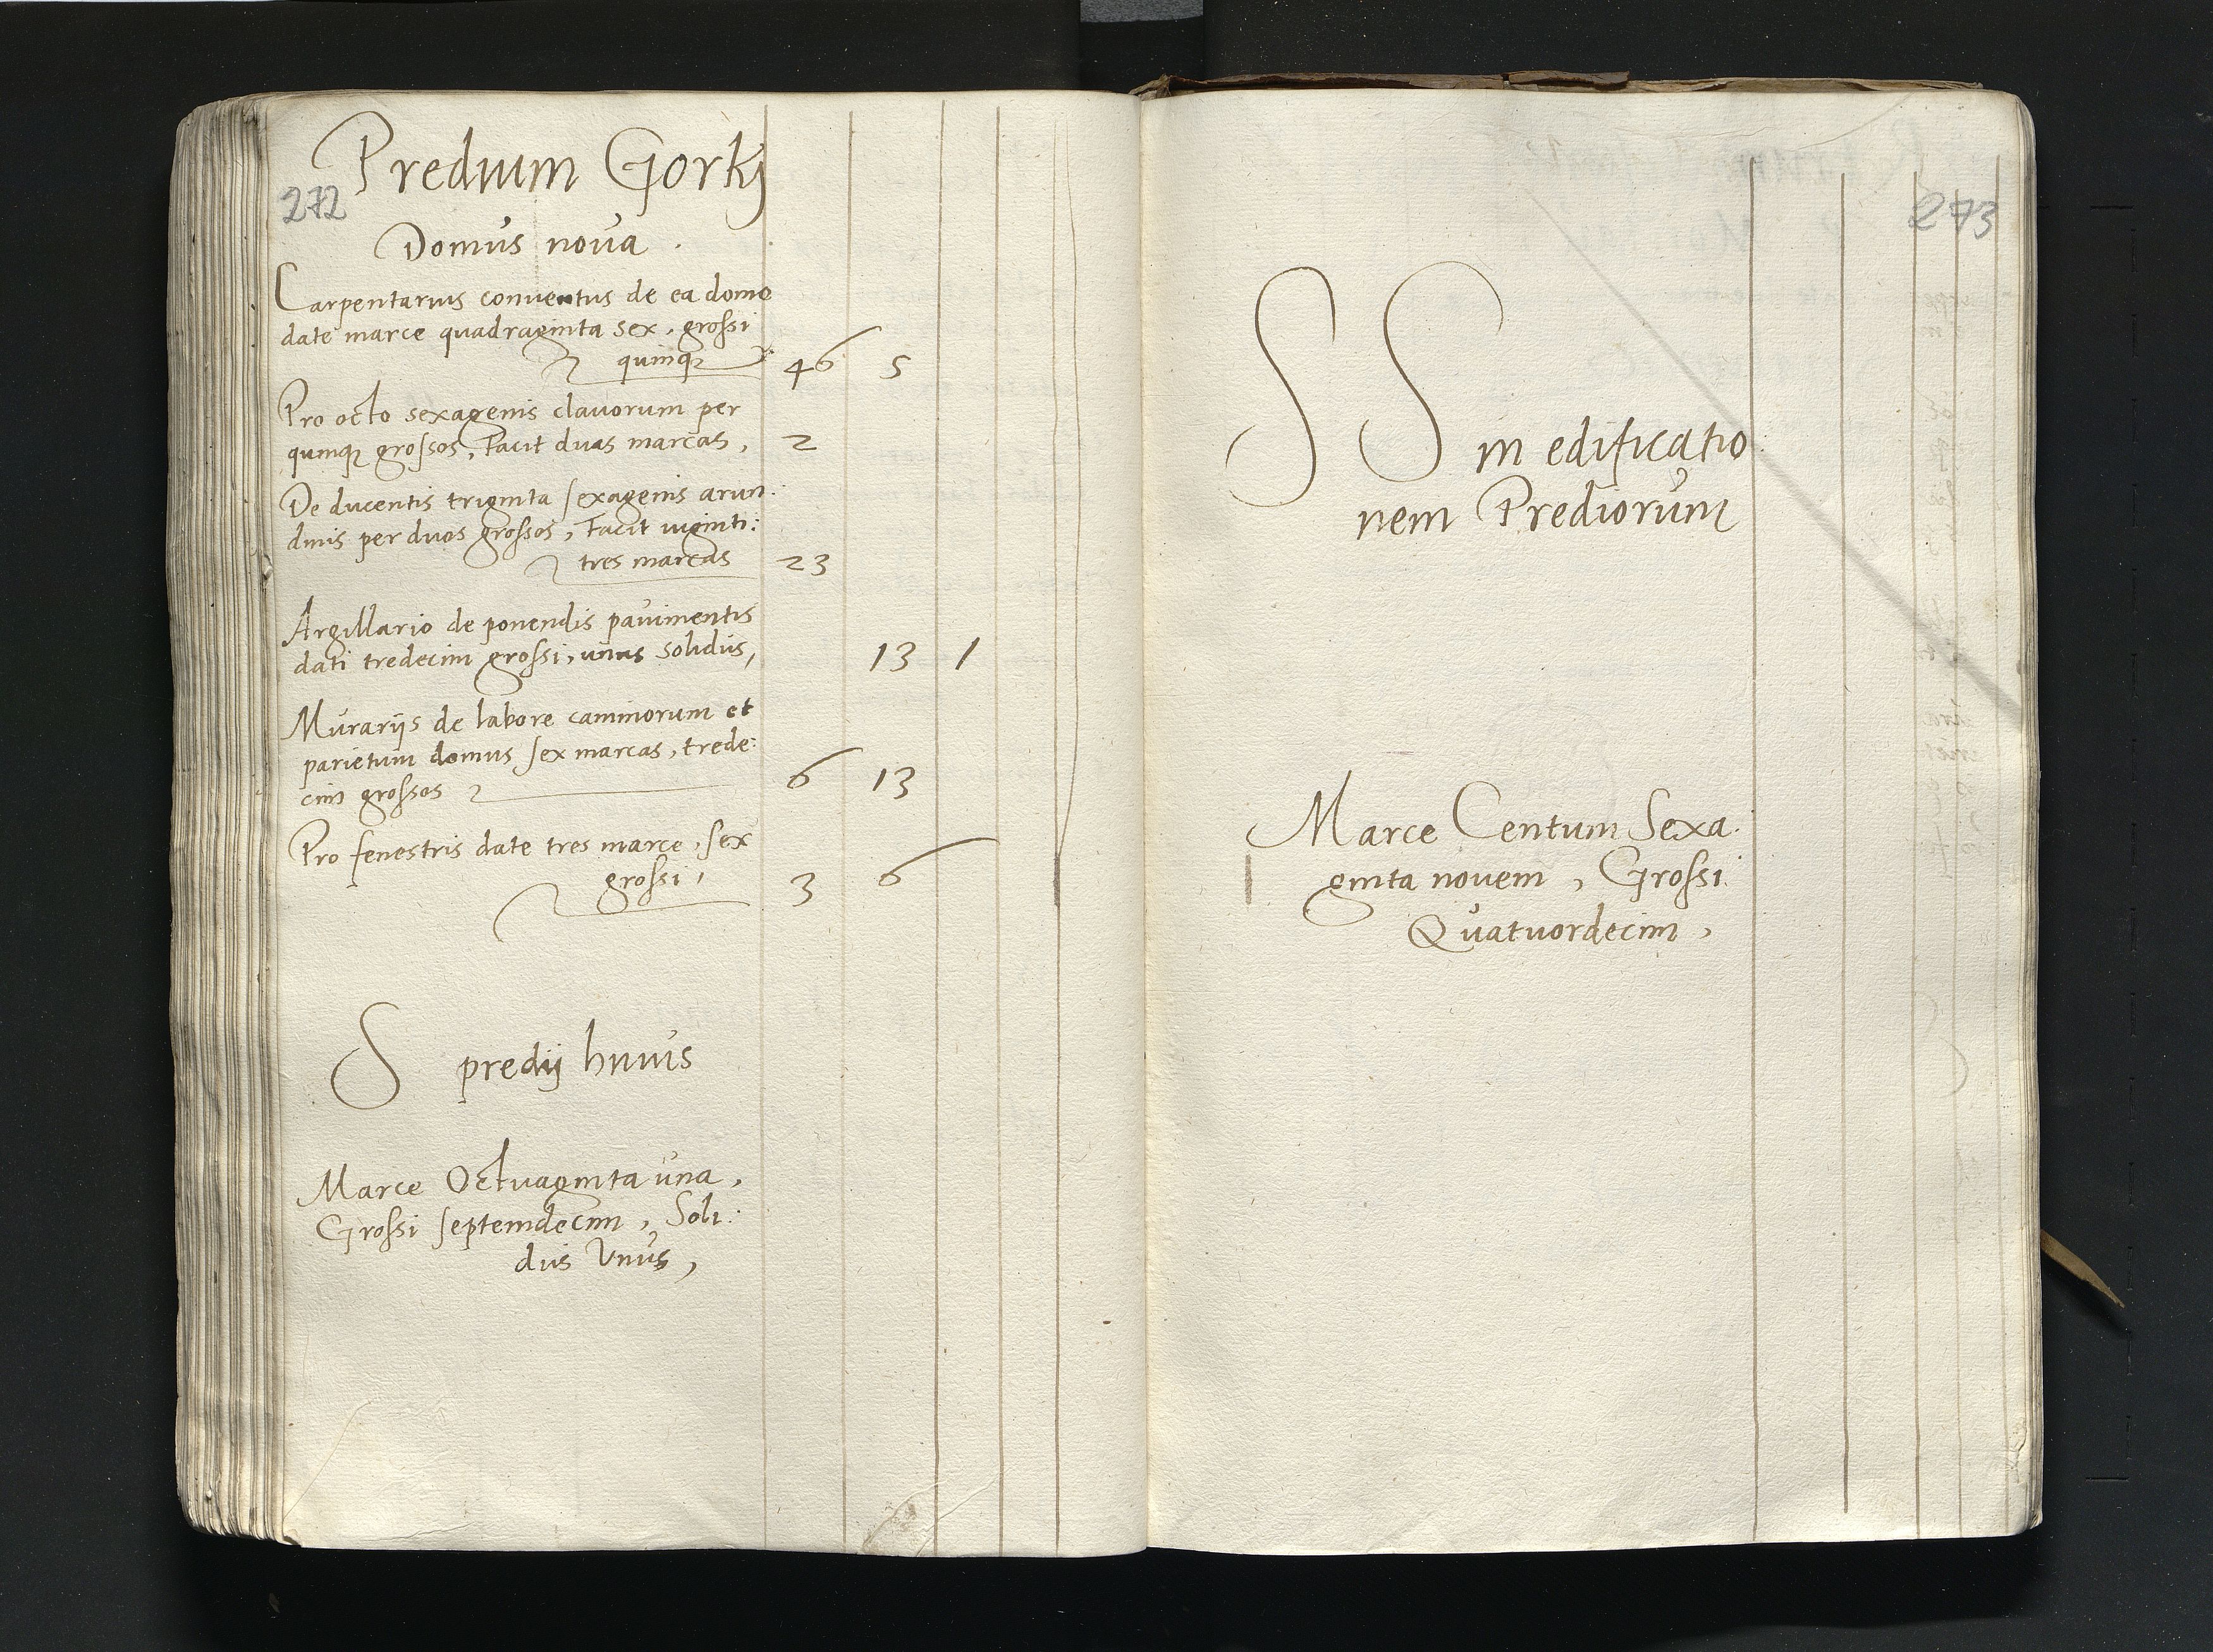 Predium Gorky
272
Domus nova .
Carpentarius conventus de ea domo
date marce quadraginta sex, grossi
quinqȝ 46 5
Pro octo sexagenis clavorum per
quinqȝ grossos, Facit duas marcas, 2
De ducentis triginta sexagenis arun:
dinis per duos grossos, Facit viginti:
tres marcas 23
Argillario de ponendis pavimentis
dati tredecim grossi, unus solidus, 13 1
Murarijs de labore caminorum et
parietum domus sex marcas, trede:
cim grossos 6 13
Pro fenestris date tres marce, sex
grossi, 3 6
S predij huius
Marce Octuaginta una,
Grossi septemdecim, Soli:
dus Vnus,
273
SS in edificatio
nem Prediorum
Marce Centum Sexa:
ginta novem, Grossi
Quatuordecim,